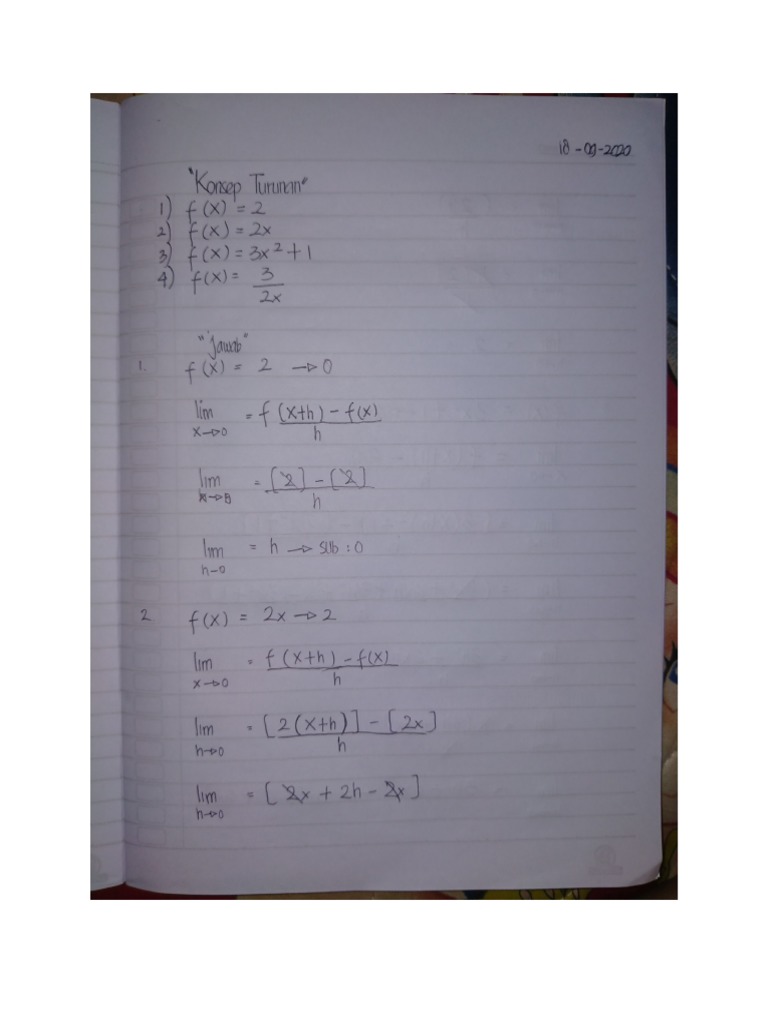 18-09-2020
"Konsep Turunan"
1) f(x) = 2
2) f(x) = 2x
3) f(x) = 3x² + 1
4) f(x) = 3
2x
"jawab"
1. f(x) = 2 → 0
lim = f(x+h) - f(x)
x→0 h
lim = [2] - [2]
h
lim = h → sub : 0
h→0
2 f(x) = 2x → 2
lim = f(x+h) - f(x)
x→0 h
lim = [2(x+h)] - [2x]
h→0 h
lim = [2x + 2h - 2x]
h→0